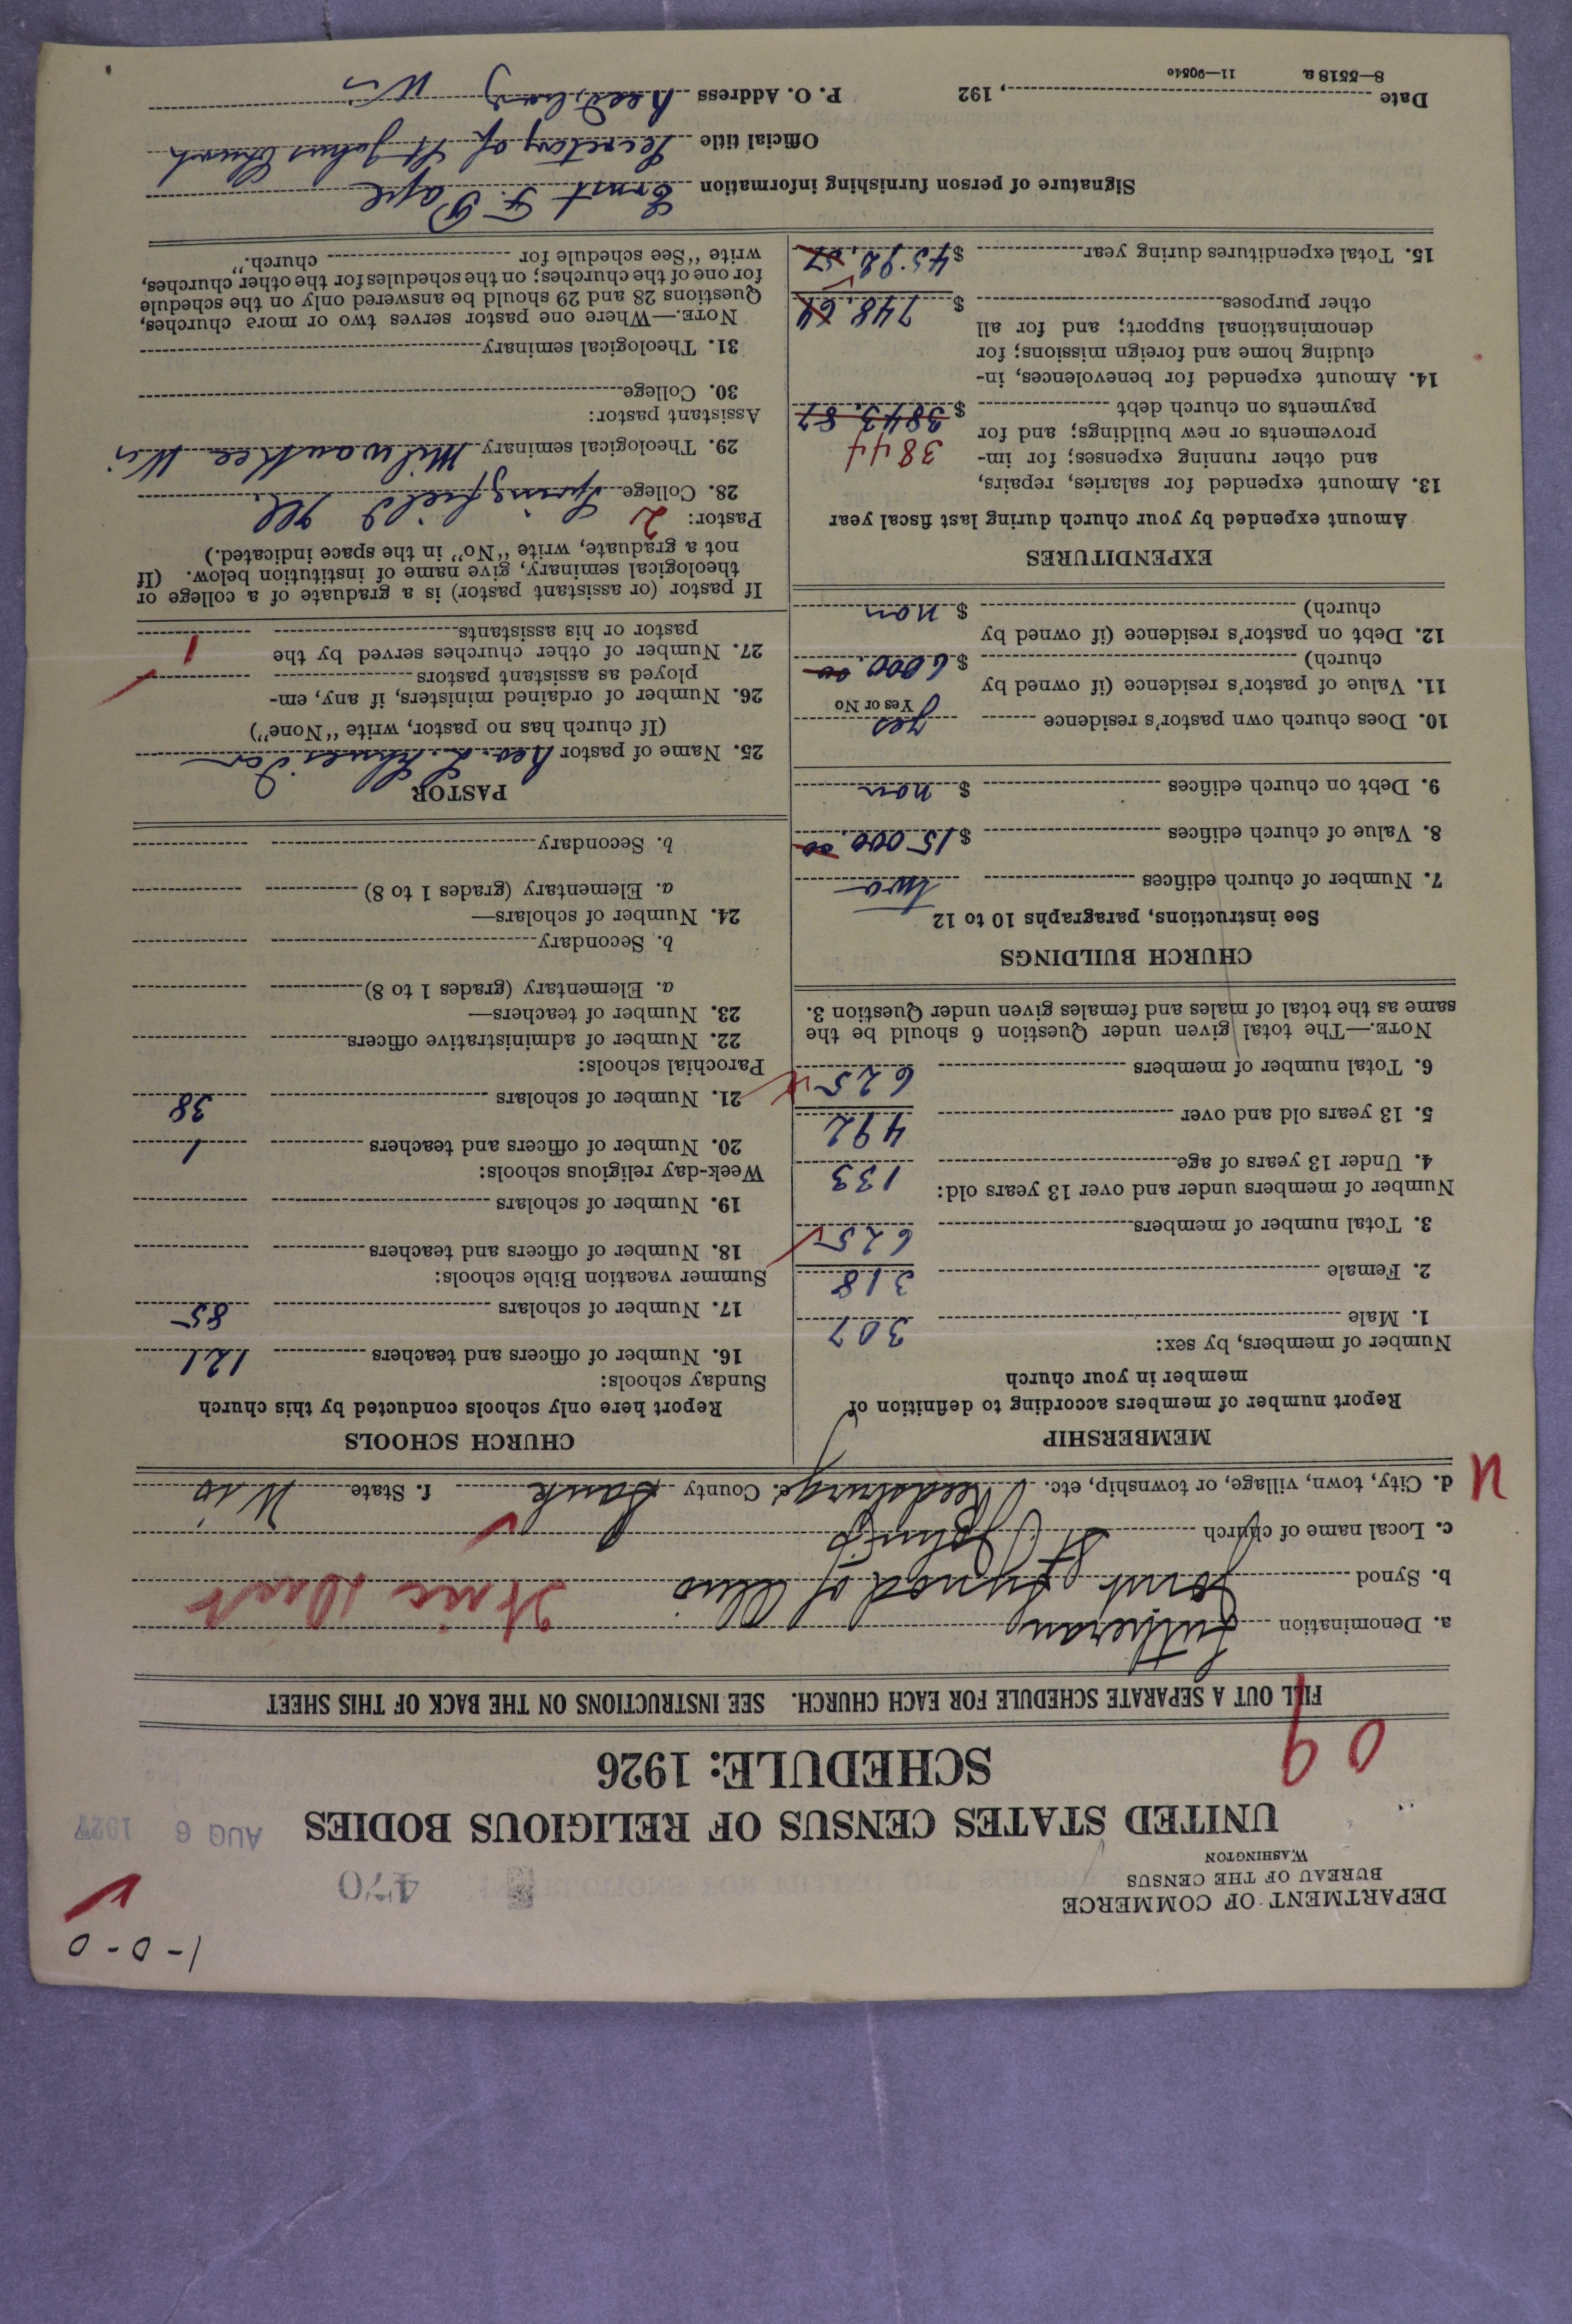 1-0-0
DEPARTMENT OF COMMERCE
BUREAU OF THE CENSUS
WASHINGTON
470
AUG 6 1927
UNITED STATES CENSUS OF RELIGIOUS BODIES
SCHEDULE: 1926
09
FILL OUT A SEPARATE SCHEDULE FOR EACH CHURCH. SEE INSTRUCTIONS ON THE BACK OF THIS SHEET
a. Denomination Lutheran
b. Synod Joint Synod of Ohio
c. Local name of church St Johns
d. City, town, village, or township, etc. Reedsburg e. County Sauk f. State Wis
MEMBERSHIP
Report number of members according to definition of
member in your church
Number of members, by sex:
1. Male 307
2. Female 318
3. Total number of members 625
Number of members under and over 13 years old:
4. Under 13 years of age 133
5. 13 years old and over 492
6. Total number of members 625
NOTE.—The total given under Question 6 should be the
same as the total of males and females given under Question 3.
CHURCH BUILDINGS
See instructions, paragraphs 10 to 12
7. Number of church edifices two
8. Value of church edifices $15000.00
9. Debt on church edifices $ non
10. Does church own pastor's residence yes
Yes or No
11. Value of pastor's residence (if owned by
church) $6000.00
12. Debt on pastor's residence (if owned by
church) $ non
EXPENDITURES
Amount expended by your church during last fiscal year
13. Amount expended for salaries, repairs,
and other running expenses; for im-
provements or new buildings; and for 3844
payments on church debt $3843.87
14. Amount expended for benevolences, in-
cluding home and foreign missions; for
denominational support; and for all
other purposes $748.64
15. Total expenditures during year $4592.57
CHURCH SCHOOLS
Report here only schools conducted by this church
Sunday schools:
16. Number of officers and teachers 121
17. Number of scholars 85
Summer vacation Bible schools:
18. Number of officers and teachers
19. Number of scholars
Week-day religious schools:
20. Number of officers and teachers 1
21. Number of scholars 38
Parochial schools:
22. Number of administrative officers
23. Number of teachers—
a. Elementary (grades 1 to 8)
b. Secondary
24. Number of scholars—
a. Elementary (grades 1 to 8)
b. Secondary
PASTOR
25. Name of pastor
(If church has no pastor, write "None")
26. Number of ordained ministers, if any, em-
ployed as assistant pastors
27. Number of other churches served by the
pastor or his assistants 1
If pastor (or assistant pastor) is a graduate of a college or
theological seminary, give name of institution below. (If
not a graduate, write "No" in the space indicated.)
Pastor: 2
28. College Springfield Ill.
29. Theological seminary Milwaukee Wis
Assistant pastor:
30. College
31. Theological seminary
NOTE.—Where one pastor serves two or more churches,
Questions 28 and 29 should be answered only on the schedule
for one of the churches; on the schedules for the other churches,
write "See schedule for church."
Signature of person furnishing information Ernst F. Pape
Official title Secretary of St Johns Church
Date , 192 P. O. Address Reedsburg Wis
8—5518a 11—9054e